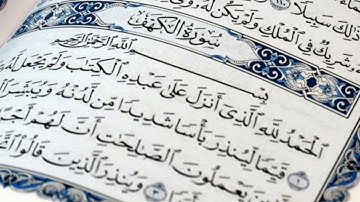 ذَٰلِكَ سَبِيلًا
شَرِيكٌ فِى ٱلْمُلْكِ وَلَمْ يَكُن لَّهُۥ وَلِىٌّ
سُورَةُ الكَهْفِ
بِسْمِ ٱللَّهِ ٱلرَّحْمَٰنِ ٱلرَّحِيمِ
ٱلْحَمْدُ لِلَّهِ ٱلَّذِىٓ أَنزَلَ عَلَىٰ عَبْدِهِ ٱلْكِتَٰبَ وَلَمْ يَجْعَل لَّهُۥ
قَيِّمًا لِّيُنذِرَ بَأْسًا شَدِيدًا مِّن لَّدُنْهُ وَيُبَشِّرَ
يَعْمَلُونَ ٱلصَّٰلِحَٰتِ أَنَّ لَهُمْ أَجْرًا
وَيُنذِرَ ٱلَّذِينَ قَالُوا۟